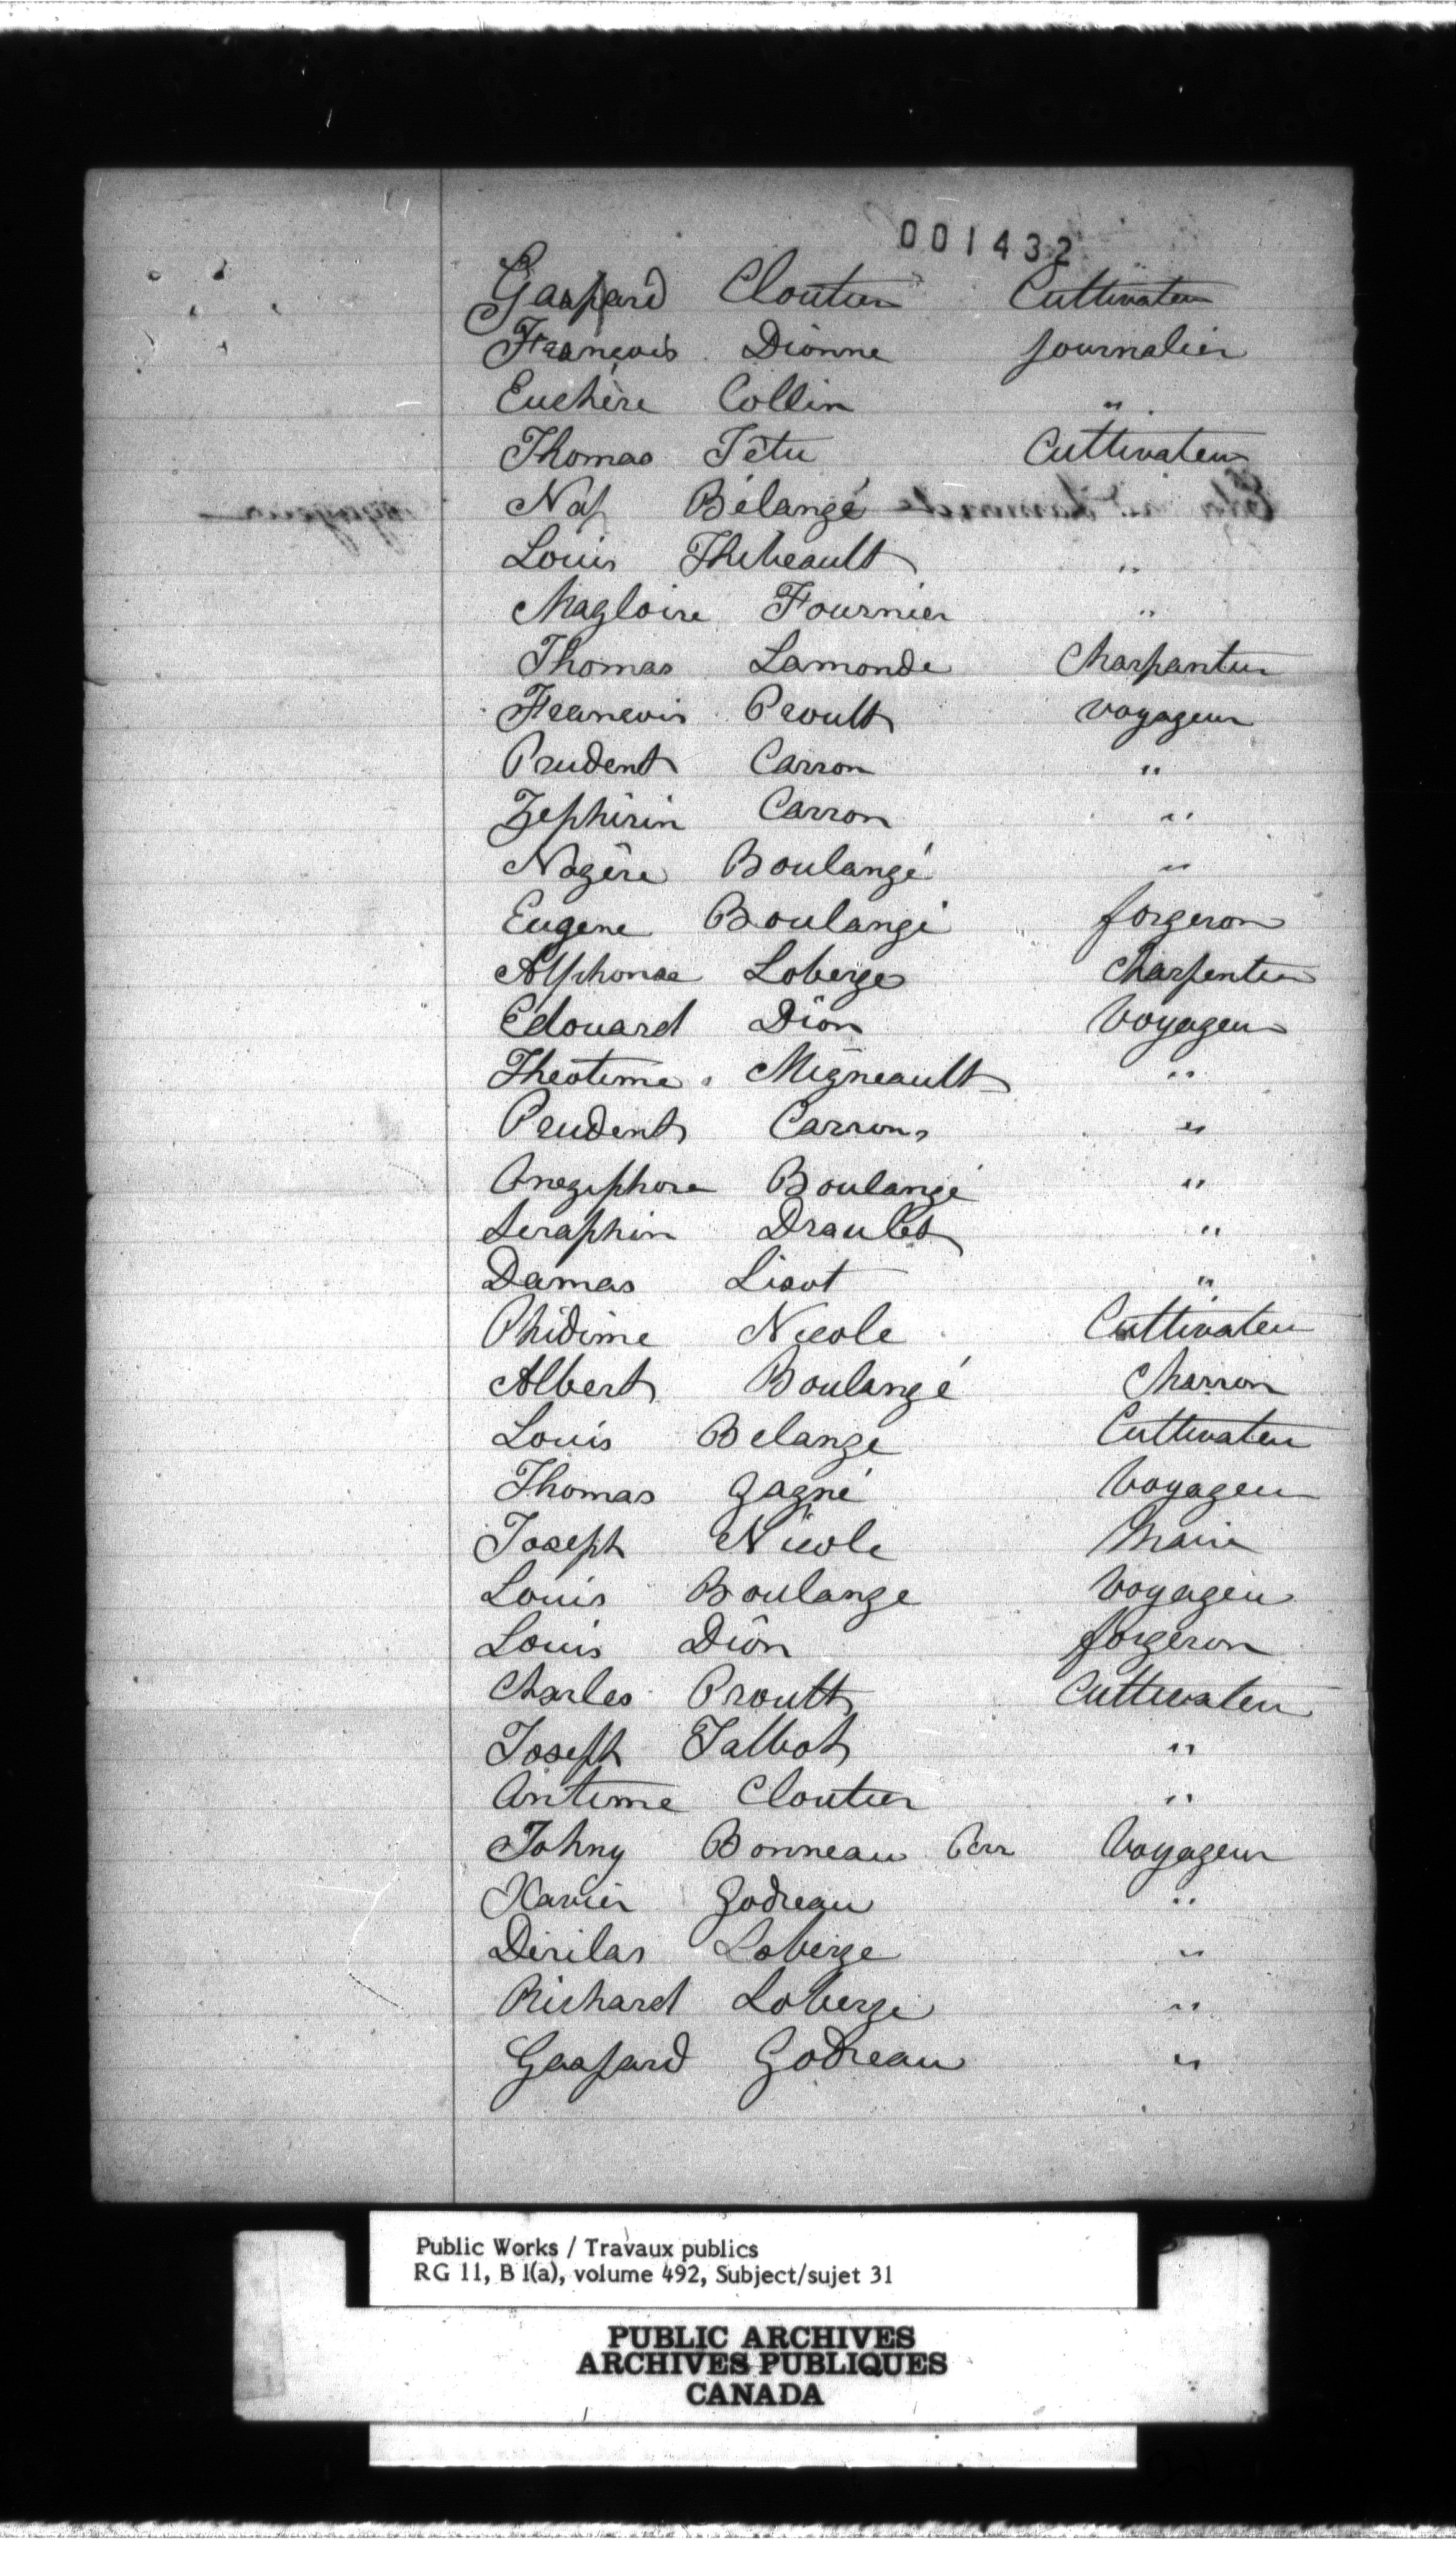 001432
Gaspard Cloutier Cultivateur
François Dionne journalier
Euchère Collin "
Thomas Têtu Cultivateur
Nap Bélangé
Louis Thibeault "
Magloire Fournier "
Thomas Lamonde Charpantier
Francois Proult voyageur
Prudent Carron "
Zephirin Carron "
Nazère Boulangé "
Eugene Boulangé forgeron
Alphonse Loberge Charpentier
Edouard Dion Voyageur
Theotime Migneault "
Prudent Carron "
Oneziphore Boulangé "
Seraphin Draulet "
Damas Lisot "
Phidime Nicole Cultivateur
Albert Boulangé Charron
Louis Belange Cultivateur
Thomas Gagné Voyageur
Joseph Nicole Maire
Louis Boulange Voyageur
Louis Dion forgeron
Charles Proult Cultivateur
Joseph Talbot "
Antime Cloutier "
Johny Bonneau Voyageur
Xavier Godreau "
Dirilas Loberge "
Richard Loberge "
Gaspard Godreau "
Public Works / Travaux publics
RG 11, B 1(a), volume 492, Subject/sujet 31
PUBLIC ARCHIVES
ARCHIVES PUBLIQUES
CANADA